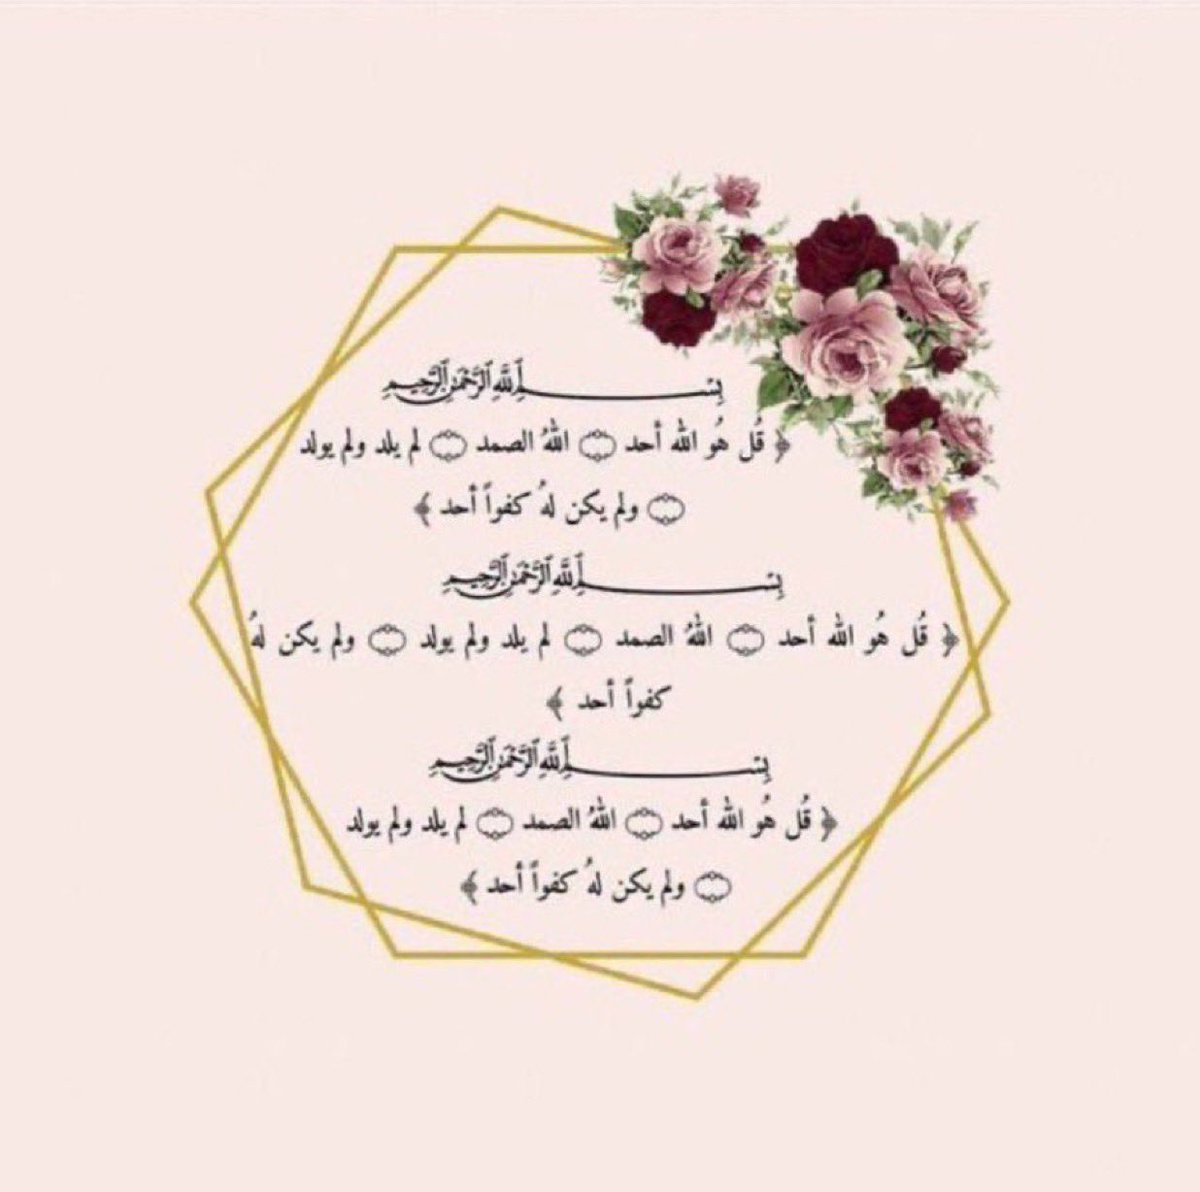 بِسْــــــــــــمِ ٱللَّهِ ٱلرَّحْمَٰنِ ٱلرَّحِيمِ
﴿ قُل هُو اللّٰه أحد ۝ اللّٰهُ الصمد ۝ لم يلد ولم يولد
۝ ولم يكن لهُ كفواً أحد ﴾
بِسْــــــــــــمِ ٱللَّهِ ٱلرَّحْمَٰنِ ٱلرَّحِيمِ
﴿ قُل هُو اللّٰه أحد ۝ اللّٰهُ الصمد ۝ لم يلد ولم يولد ۝ ولم يكن لهُ
كفواً أحد ﴾
بِسْــــــــــــمِ ٱللَّهِ ٱلرَّحْمَٰنِ ٱلرَّحِيمِ
﴿ قُل هُو اللّٰه أحد ۝ اللّٰهُ الصمد ۝ لم يلد ولم يولد
۝ ولم يكن لهُ كفواً أحد ﴾